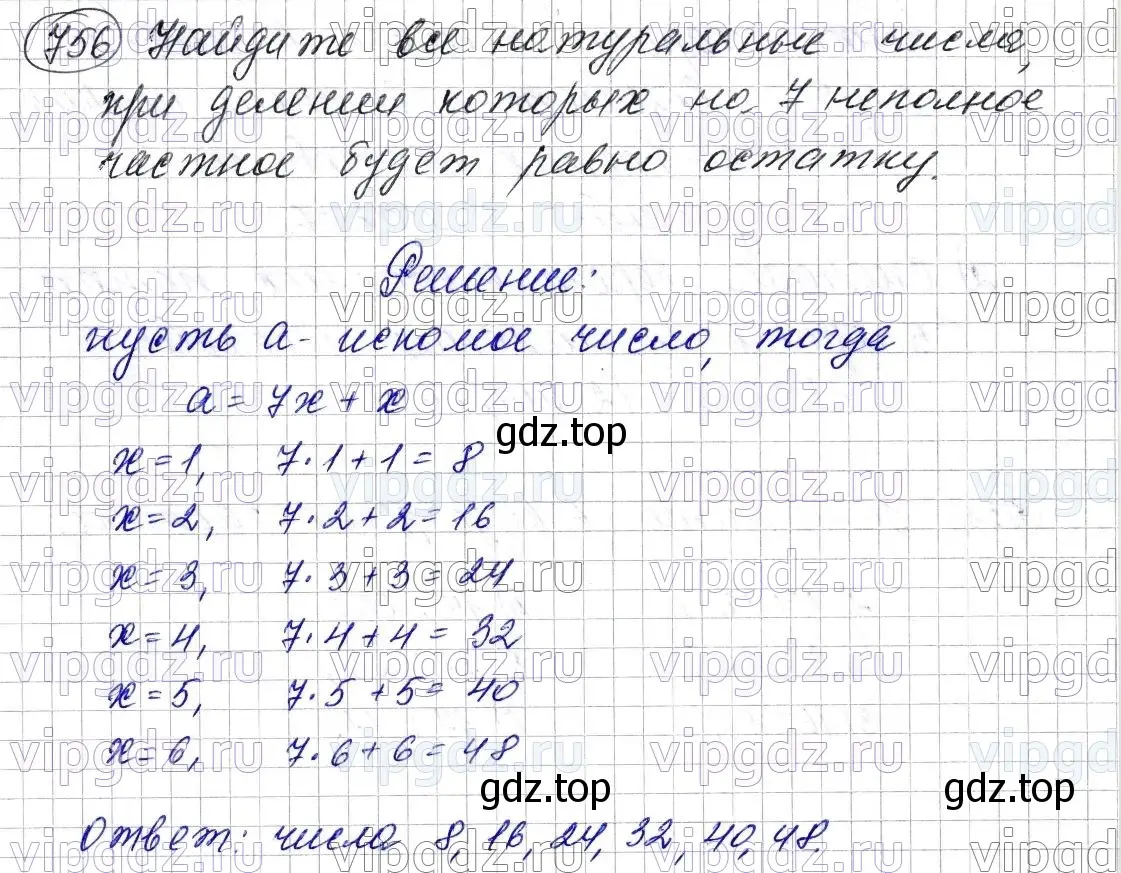 756 Найдите все натуральные числа,
при делении которых на 7 неполное
частное будет равно остатку.
Решение:
пусть а - искомое число, тогда
а = 7х + х
gdz.top
х = 1, 7·1 + 1 = 8
х = 2, 7·2 + 2 = 16
х = 3, 7·3 + 3 = 24
х = 4, 7·4 + 4 = 32
х = 5, 7·5 + 5 = 40
х = 6, 7·6 + 6 = 48
gdz.top gdz.top
Ответ: числа 8, 16, 24, 32, 40, 48.
vipgdz.ru vipgdz.ru vipgd